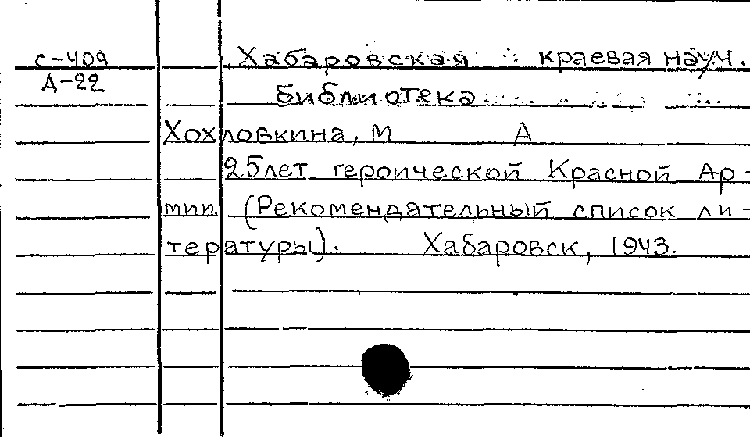 С-409
Д-22
Хабаровская краевая науч.
библиотека
Хохловкина, М А
25 лет героической Красной Ар-
мии. (Рекомендательный список ли-
тературы). Хабаровск, 1943.